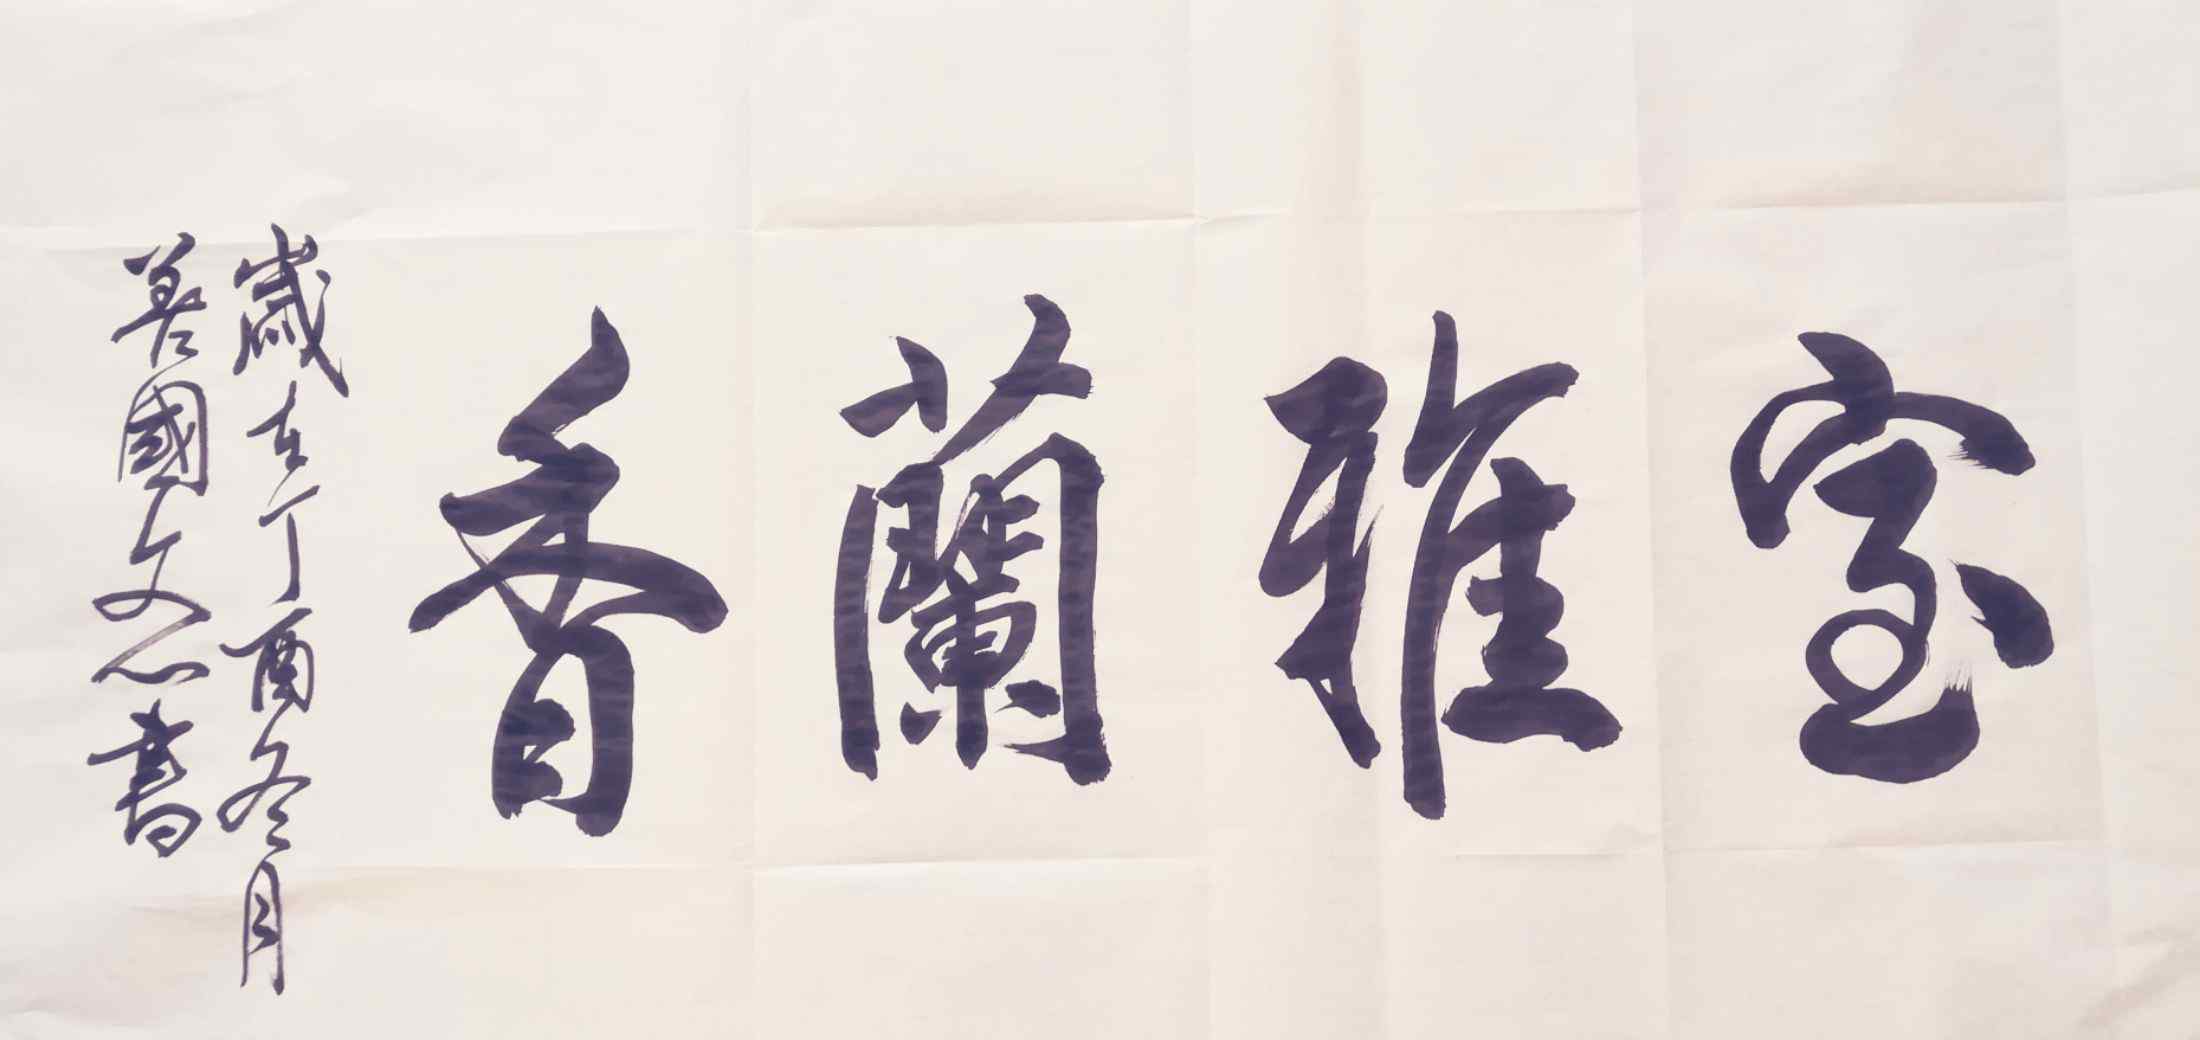 室雅蘭香
歲在丁酉冬月
善國文心書